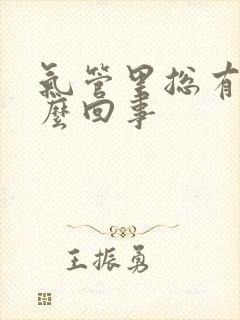 氣管里総有
麼回事
王振勇